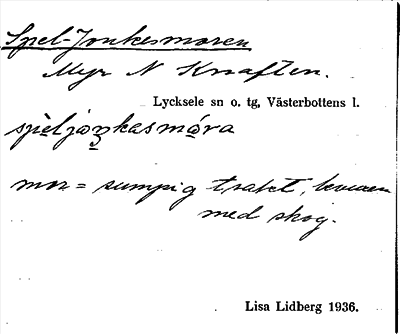 Spel-Jonkesmoren
Myr N Knaften.
Lycksele sn o. tg, Västerbottens l.
spèljoŋkasmóra
mor = sumpig trakt, bevuxen
med skog.
Lisa Lidberg 1936.